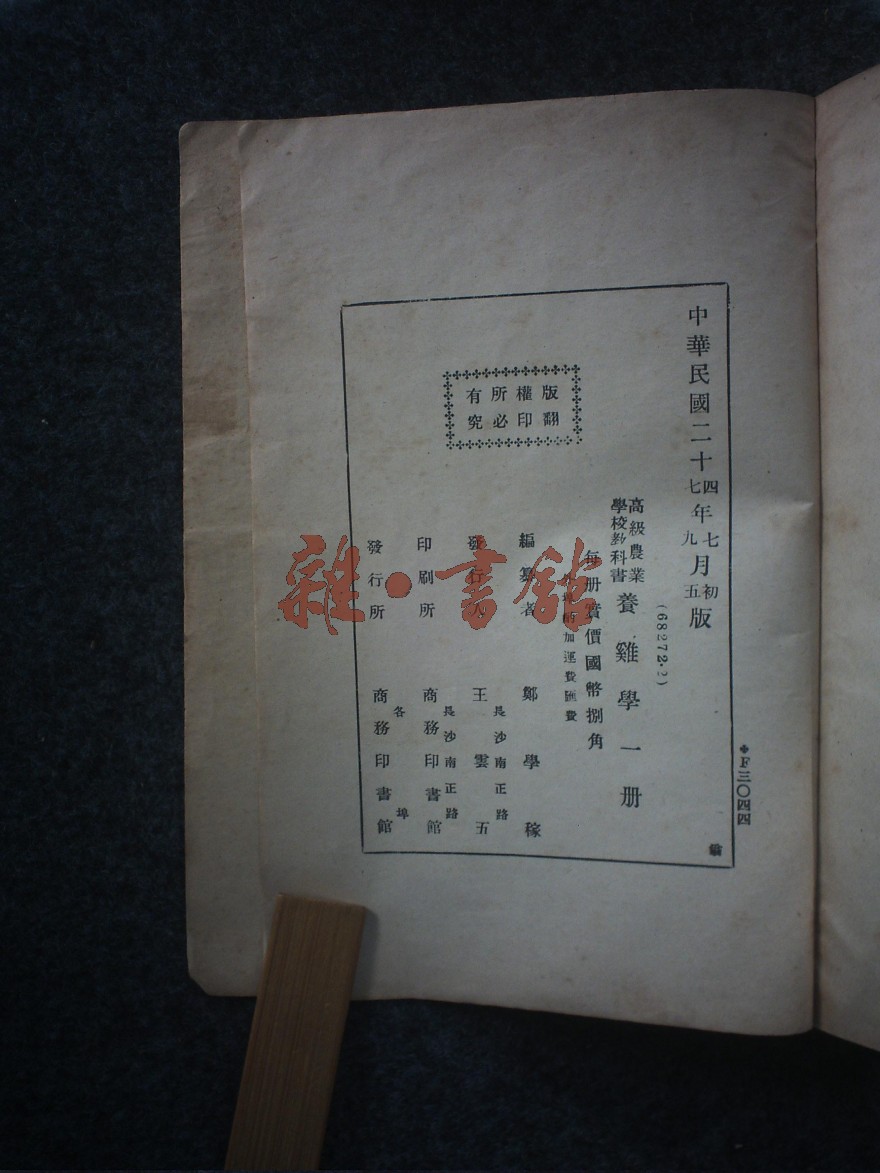 中華民國二十四年七月初版
七九五
(68272·2)
高級農業
學校教科書
養雞學一册
每册實價國幣捌角
外埠酌加運費匯費
編纂者 鄭學稼
發行人 王雲五
長沙南正路
印刷所 商務印書館
長沙南正路
發行所 商務印書館
各埠
版權所有
翻印必究
✤F三〇四四
雜·書館